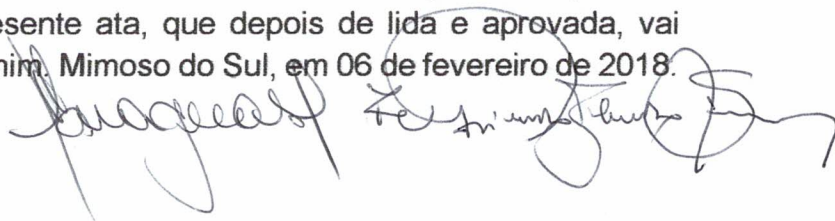 esente ata, que depois de lida e aprovada, vai
nim. Mimoso do Sul, em 06 de fevereiro de 2018.